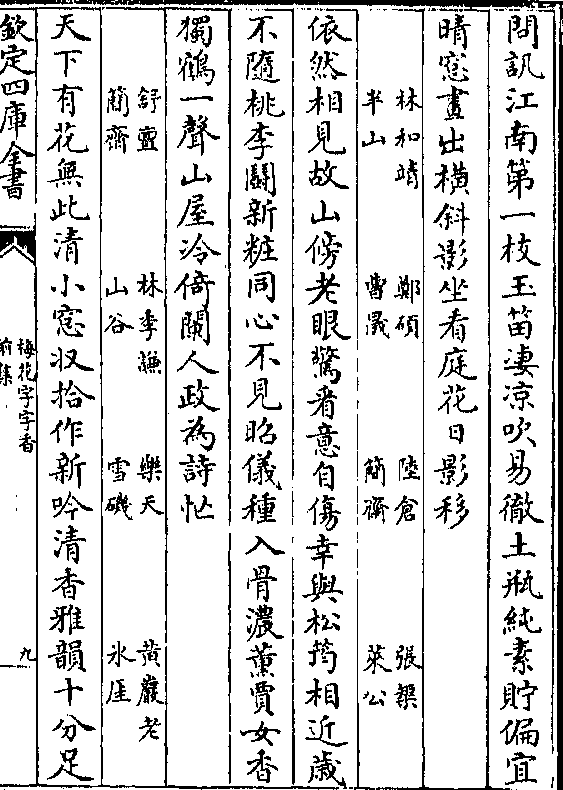 問訊江南第一枝玉笛淒涼吹易徹土瓶純素貯偏宜
晴窓畫出橫斜影坐看庭花日影移
林和靖　鄭碩　陸倉　張榘
半山　曹㝛　簡齋　萊公
依然相見故山傍老眼驚看意自傷幸與松筠相近歲
不隨桃李鬭新粧同心不見昭儀種入骨濃薰賈女香
獨鶴一聲山屋冷倚闌人政為詩忙
舒亶　林季謙　樂天　黃巖老
簡齋　山谷　雪磯　氷厓
天下有花無此清小窓収拾作新吟清香雅韻十分足
欽定四庫全書
梅花字字香
前集
九